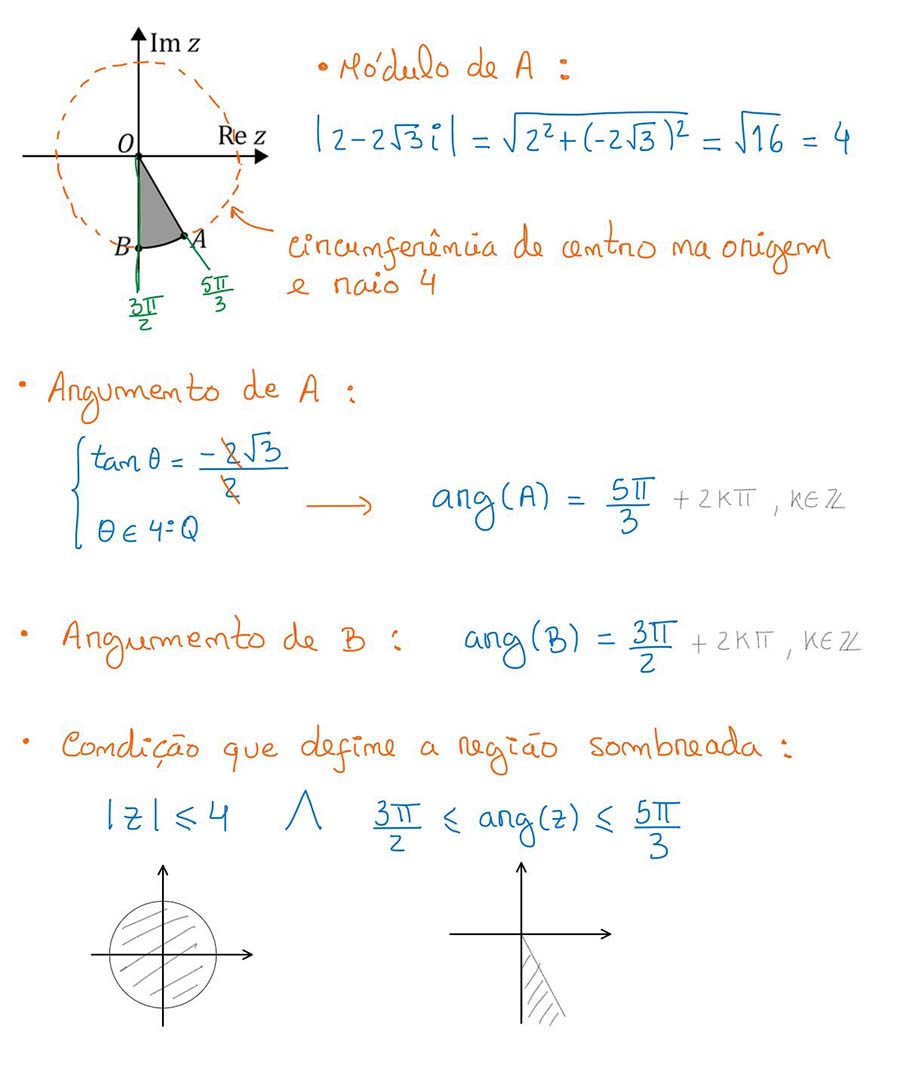 Im z
• Módulo de A :
Re z
O
|2-2√3i| = √(2²+(-2√3)²) = √16 = 4
B
A
circunferência de centro na origem
e raio 4
3π/2
5π/3
• Argumento de A :
tan θ = -2√3/2
θ ∈ 4ºQ
⟶ arg(A) = 5π/3 + 2kπ , k∈ℤ
• Argumento de B : arg(B) = 3π/2 + 2kπ , k∈ℤ
• Condição que define a região sombreada :
|z| ⩽ 4 ∧ 3π/2 ⩽ arg(z) ⩽ 5π/3